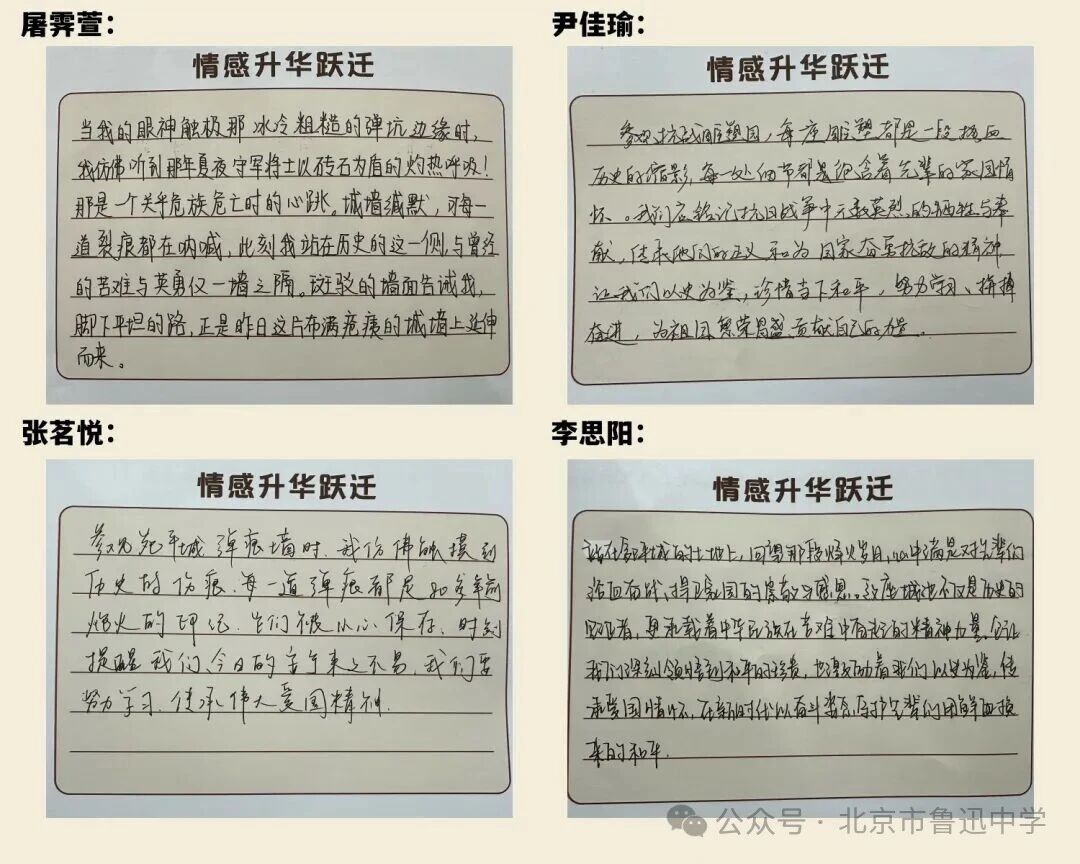 屠霁萱：
情感升华跃迁
当我的眼神触极那冰冷粗糙的弹坑边缘时，
我仿佛听到那年夏夜守军将士以砖石为盾的灼热呼吸！
那是一个关乎危族危亡时的心跳。城墙缄默，可每一
道裂痕都在呐喊，此刻我站在历史的这一侧，与曾经
的苦难与英勇仅一墙之隔。斑驳的墙面告诫我，
脚下平坦的路，正是昨日这片布满疮痍的城墙上延伸
而来。
尹佳瑜：
情感升华跃迁
参观抗战雕塑园，每座雕塑都是一段热血
历史的缩影，每一处细节都蕴含着先辈的家国情
怀。我们应铭记抗日战争中无数英烈的牺牲与奉
献，传承他们的正义和为国家奋勇抗敌的精神
让我们以史为鉴，珍惜当下和平，努力学习、拼搏
奋进，为祖国繁荣昌盛贡献自己的力量。
张茗悦：
情感升华跃迁
参观宛平城弹痕墙时，我仿佛能摸到
历史的伤痕，每一道弹痕都是80多年前
炮火的印记，它们被小心保存，时刻
提醒我们，今日的来之不易，我们要
努力学习，传承伟大爱国精神．
李思阳：
情感升华跃迁
站在宛平城的土地上，回望那段烽火岁月，心中满是对先辈们
浴血奋战、捍卫家国的崇敬与感恩。这座城池不仅是历史的
见证者，更承载着中华民族在苦难中奋起的精神力量。它让
我们深刻领悟到和平的珍贵，也激励着我们以史为鉴，传
承爱国情怀，在新时代以奋斗姿态守护先辈们用鲜血换
来的和平．
公众号·北京市鲁迅中学